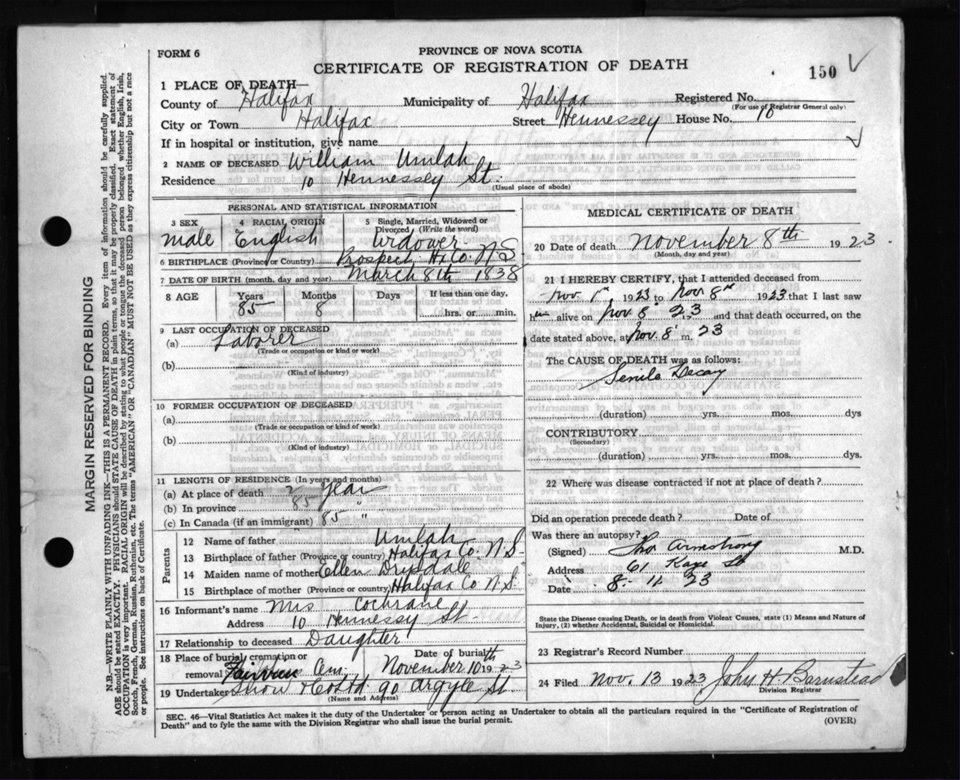 FORM 6
PROVINCE OF NOVA SCOTIA
CERTIFICATE OF REGISTRATION OF DEATH
150
1 PLACE OF DEATH—
County of Halifax Municipality of Halifax Registered No.
(For use of Registrar General only)
City or Town Halifax Street Hennessey House No. 10
If in hospital or institution, give name
2 NAME OF DECEASED William Umlah
Residence 10 Hennessey St.
(Usual place of abode)
PERSONAL AND STATISTICAL INFORMATION
3 SEX 4 RACIAL ORIGIN 5 Single, Married, Widowed or Divorced (Write the word)
male English Widower
6 BIRTHPLACE (Province or Country) Prospect Hx Co. N S
7 DATE OF BIRTH (month, day and year) March 8th 1838
8 AGE Years Months Days If less than one day,
85 8 hrs. or min.
9 LAST OCCUPATION OF DECEASED
(a) Laborer
(Trade or occupation or kind or work)
(b)
(Kind of industry)
10 FORMER OCCUPATION OF DECEASED
(a)
(Trade or occupation or kind or work)
(b)
(Kind of industry)
11 LENGTH OF RESIDENCE (In years and months)
(a) At place of death 2 year
(b) In province 85 "
(c) In Canada (if an immigrant) 85 "
Parents
12 Name of father Umlah
13 Birthplace of father (Province or country) Halifax Co. N S.
14 Maiden name of mother Ellen Drysdale
15 Birthplace of mother (Province or country) Halifax Co N S.
16 Informant's name Mrs Cochrane
Address 10 Hennessy St.
17 Relationship to deceased Daughter
18 Place of burial, cremation or removal Fairview Cem. Date of burial November 10th 1923
19 Undertaker Snow & Co Ltd 90 Argyle St.
(Name and Address)
MEDICAL CERTIFICATE OF DEATH
20 Date of death November 8th 1923
(Month, day and year)
21 I HEREBY CERTIFY, that I attended deceased from
Nov 1923 to Nov 8 1923 that I last saw
him alive on Nov 8 23 and that death occurred, on the
date stated above, at Nov. 8 m. 23
The CAUSE OF DEATH was as follows:
Senile Decay
(duration) yrs. mos. dys
CONTRIBUTORY
(Secondary)
(duration) yrs. mos. dys.
22 Where was disease contracted if not at place of death?
Did an operation precede death? Date of
Was there an autopsy?
(Signed) Tho. Armstrong M.D.
Address 61 Kaye St
Date 8. 11. 23
State the Disease causing Death, or in death from Violent Causes, state (1) Means and Nature of Injury, (2) whether Accidental, Suicidal or Homicidal.
23 Registrar's Record Number
24 Filed Nov. 13 1923 John H Barnstead
Division Registrar
SEC. 46—Vital Statistics Act makes it the duty of the Undertaker or person acting as Undertaker to obtain all the particulars required in the "Certificate of Registration of
Death" and to fyle the same with the Division Registrar who shall issue the burial permit.
(OVER)
MARGIN RESERVED FOR BINDING
N.B.—WRITE PLAINLY WITH UNFADING INK—THIS IS A PERMANENT RECORD. Every item of information should be carefully supplied.
AGE should be stated EXACTLY. PHYSICIANS should STATE CAUSE OF DEATH in plain terms, so that it may be properly classified. Exact statement of
OCCUPATION is very important. RACIAL ORIGIN will be described by stating to what people or tongue the deceased person belonged whether English, Irish,
Scotch, French, German, Russian, Ruthenian, etc. The terms "AMERICAN" OR "CANADIAN" MUST NOT BE USED as they express citizenship but not a race
or people. See instructions on back of Certificate.